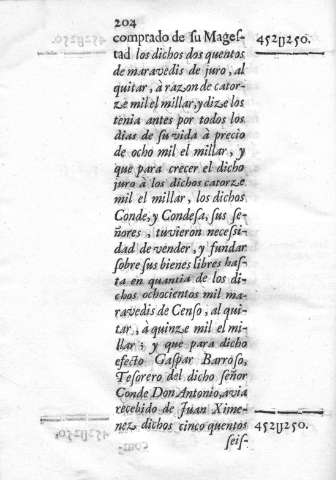 204
comprado de ſu Mageſ- 452ꝗ250.
tad los dichos dos quentos
de maravedis de juro, al
quitar, à razon de cator-
ze mil el millar, y dize los
tenia antes por todos los
dias de ſu vida à precio
de ocho mil el millar, y
que para crecer el dicho
juro à los dichos catorze
mil el millar, los dichos
Conde, y Condeſa, ſus ſe-
ñores, tuvieron neceſsi-
dad de vender, y fundar
ſobre ſus bienes libres haſ-
ta en quantia de los di-
chos ochocientos mil ma-
ravedis de Cenſo, al qui-
tar, à quinze mil el mi-
llar; y que para dicho
efecto Gaſpar Barroſo,
Teſorero del dicho ſeñor
Conde Don Antonio, avia
recebido de Juan Xime-
nez dichos cinco quentos 452ꝗ250.
ſeiſ-